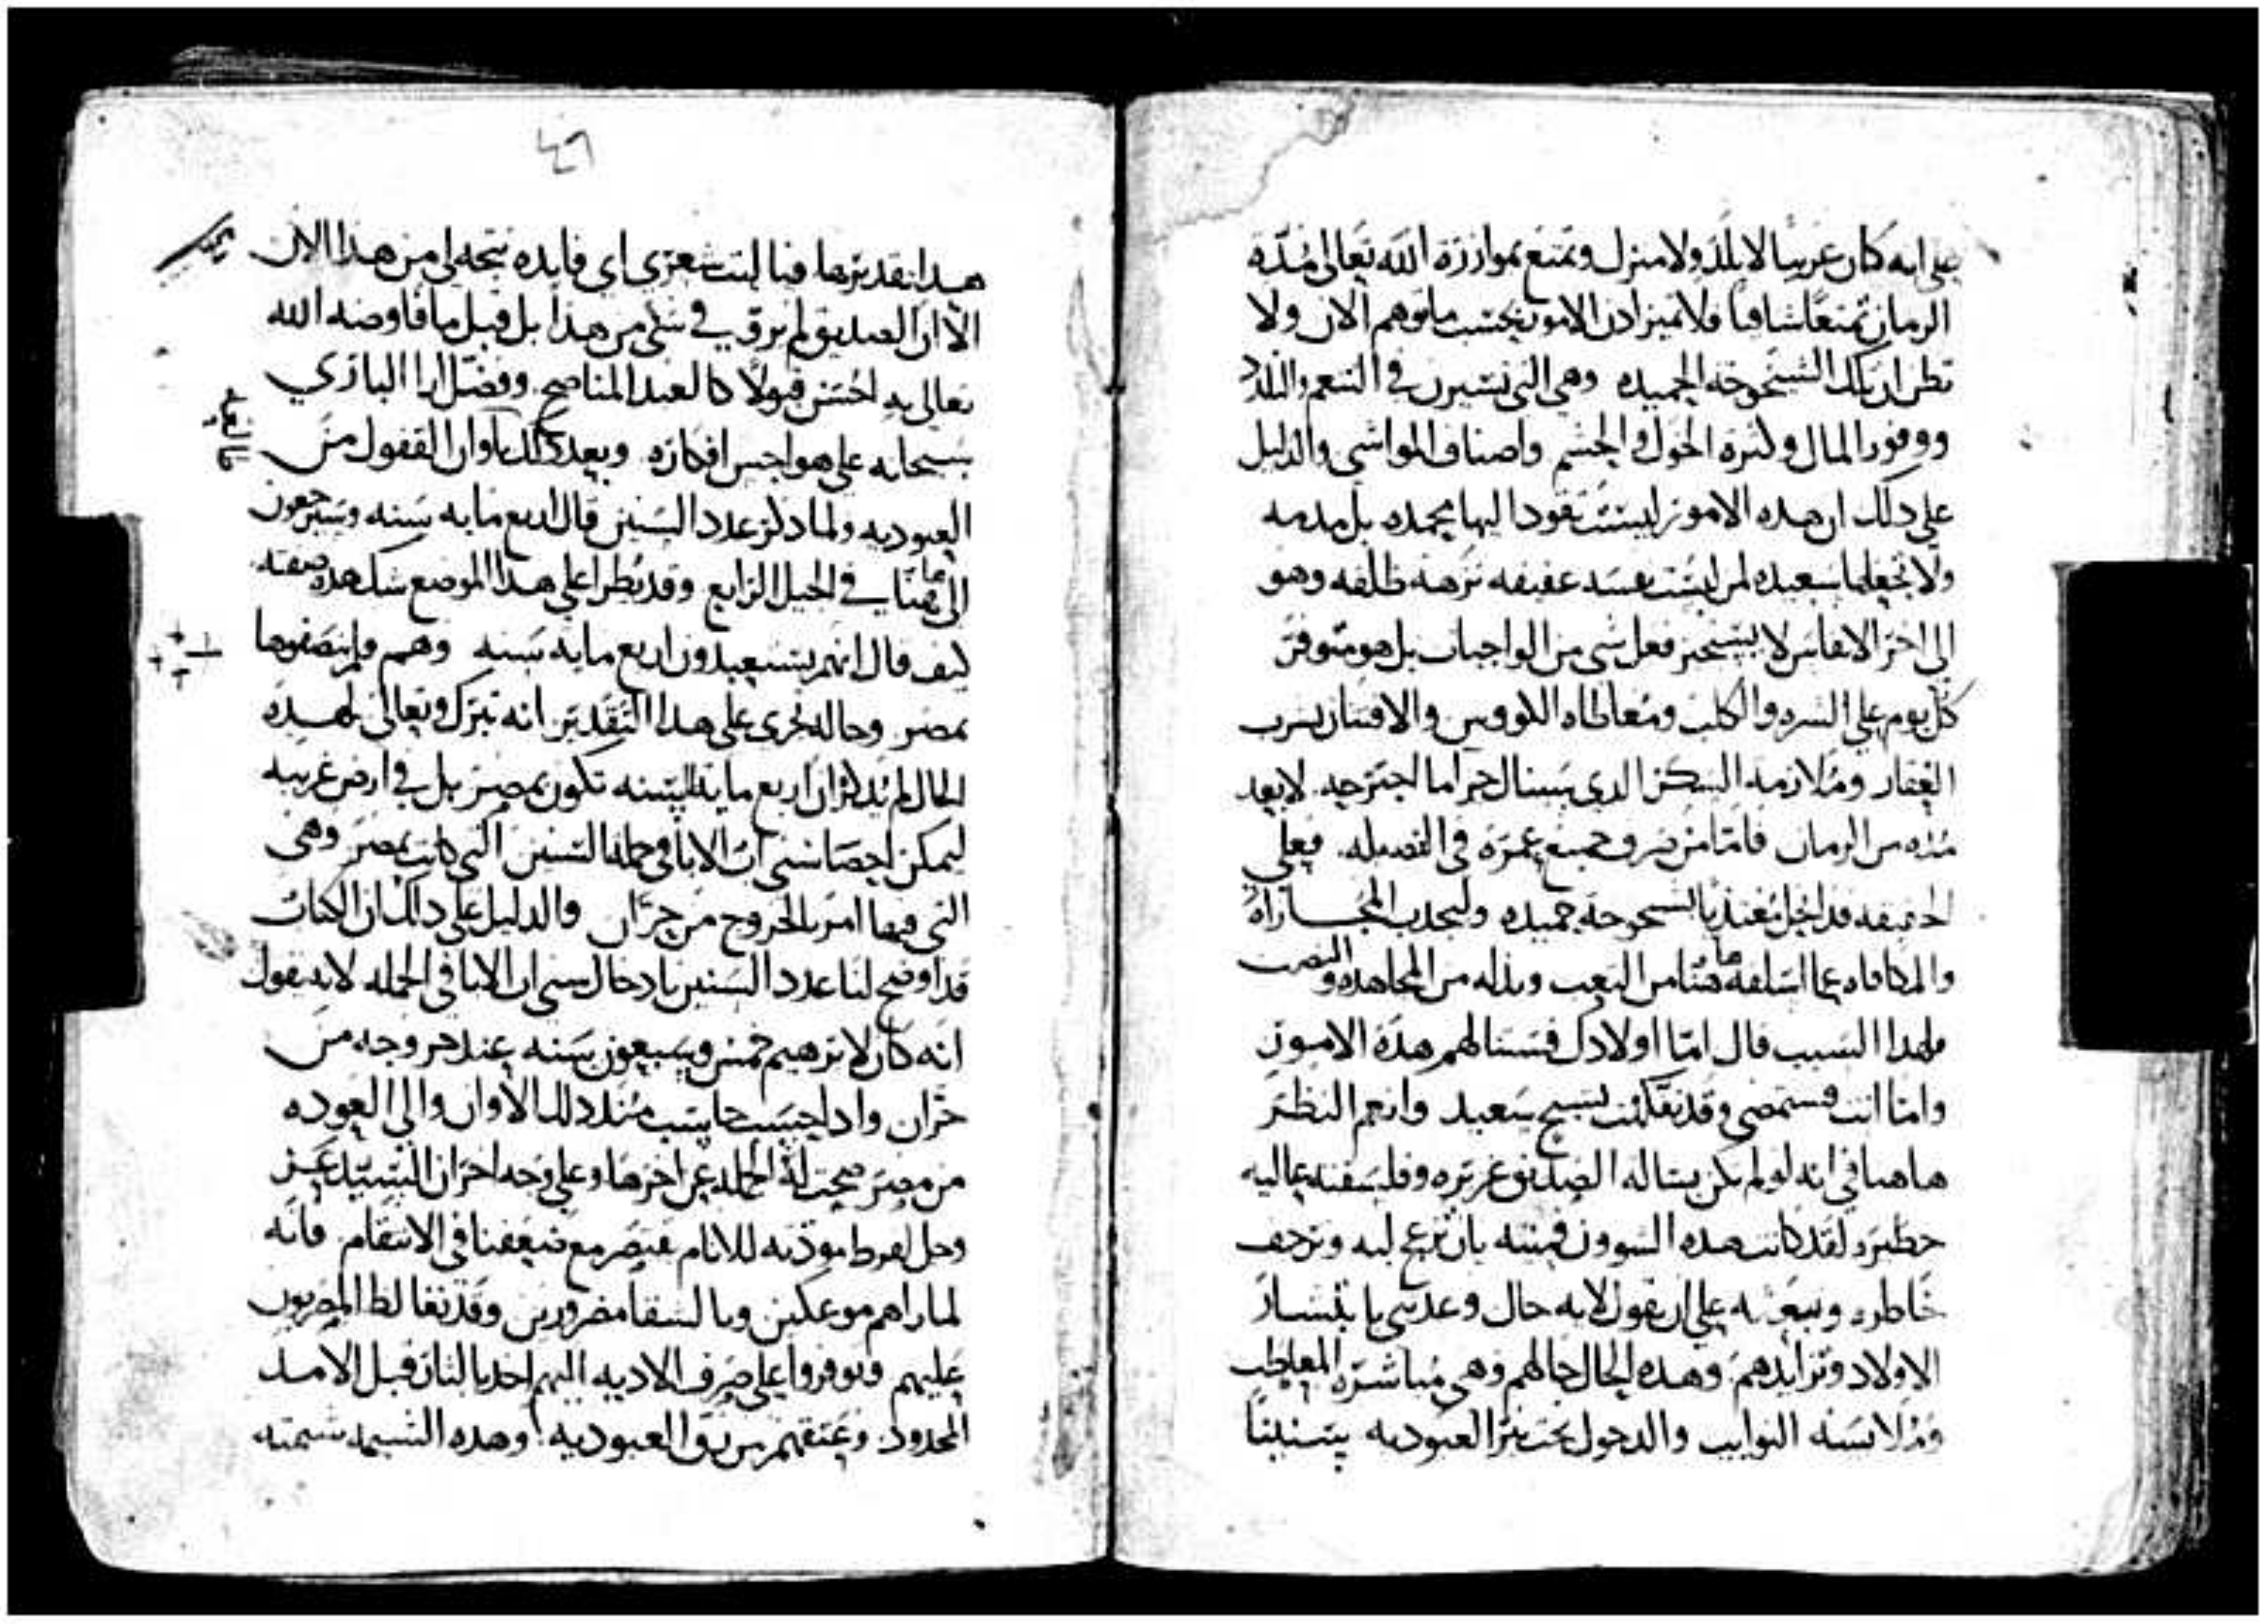 على انه كان غريبا لا بلد ولا منزل وتمتع بموازرة الله تعالى مدة
الزمان تمتعا شافيا فلا تميز اذن الامور بحسب ما توهم الان ولا
تظن ان تلك الشيخوخه الحميده وهي التي تسيرن في التنعم والتلذذ
ووفور المال وكثرة الخول والحشم واصناف المواشي والدليل
على ذلك ان هذه الامور ليست تقود اليها بحمده بل مدمه
ولا تجعلها سعيده لمن ليست نفسه عفيفه نزهه ظلفه وهو
الى اخر الانفاس لا يستخير فعل شي من الواجبات بل هو متوفر
كل يوم على الشره والكلب ومعاطاه الكووس والافتنان بشرب
العقار وملازمة السكر الذي سينال جزا ما اجترحه لا بعد
مده من الزمان فاما من صرف جميع عمره في الفضيله فعلى
الحقيقه قد انحل مغتذيا بشيخوخه حميده وليجدن المجازاه
والمكافاه عما اسلفه هاهنا من التعب وبذله من المجاهده والنصب
فلهذا السبب قال اما اولادك فستنالهم هذه الامور
واما انت فستمضي وقد تفكهت بشيخ سعيد وانعم النظر
هاهنا في انه لو لم تكن بسالة الصديق غزيره وفلسفته عاليه
خطيره لقد كانت هذه الشوون قمينه بان تزعج لبه وترجف
خاطره وتبعثه على ان يقول لايه حال وعدتني بانتشار
الاولاد وتزايدهم وهذه الحال حالهم وهي مباشرة المعاطب
وملابسة النوايب والدخول تحت نير العبوديه سنينا
٤٦
هذا تقديرها فيا ليت شعري اي فايده تتجه لي من هذا الان
الا ان الصديق لم يروق في شي من هذا بل قبل ما فاوضه الله
تعالى به احسن قبولا كالعبد المناصح وفضل ارا الباري
سبحانه على هواجس افكاره وبعد ذلك اوان القفول من
العبوديه ولما ذكر عدد السنين قال اربع مايه سنه وسيرجعون
الى هاهنا في الجيل الرابع وقد يطرا على هذا الموضع شك هذه صفته
كيف قال انهم يستعبدون اربع مايه سنه وهم فلم ينصفوها
بمصر وحاله تجري على هذا التقدير انه تبرك وتعالى لهذه
الحال لم يذكر ان اربع مايه السنه تكون بمصر بل في ارض غريبه
ليمكن احصا سني ات الابا في جملة السنين التي كانت بمصر وهي
التي فيها امر بالخروج من حران والدليل على ذلك ان الكتاب
قد اوضح لنا عدد السنين بادخال سني ات الابا في الجمله لانه يقول
انه كان لابرهيم خمس وسبعون سنه عند خروجه من
حران واذا حسب حاسب منذ ذلك الاوان والى العوده
من مصر صحت له الجمله عن اخرها وعلى وجه اخر ان السيد عز
وجل لفرط مودته للانام يقصر مع ضعفنا في الانتقام فانه
لما راهم موعكين وبالشقا مضرورين وقد تغالظ المصريون
عليهم وتوفروا على صرف الاديه اليهم اخد بالثار قبل الامد
المحدود وعتقهم من رق العبوديه وهذه الشيمه شيمته